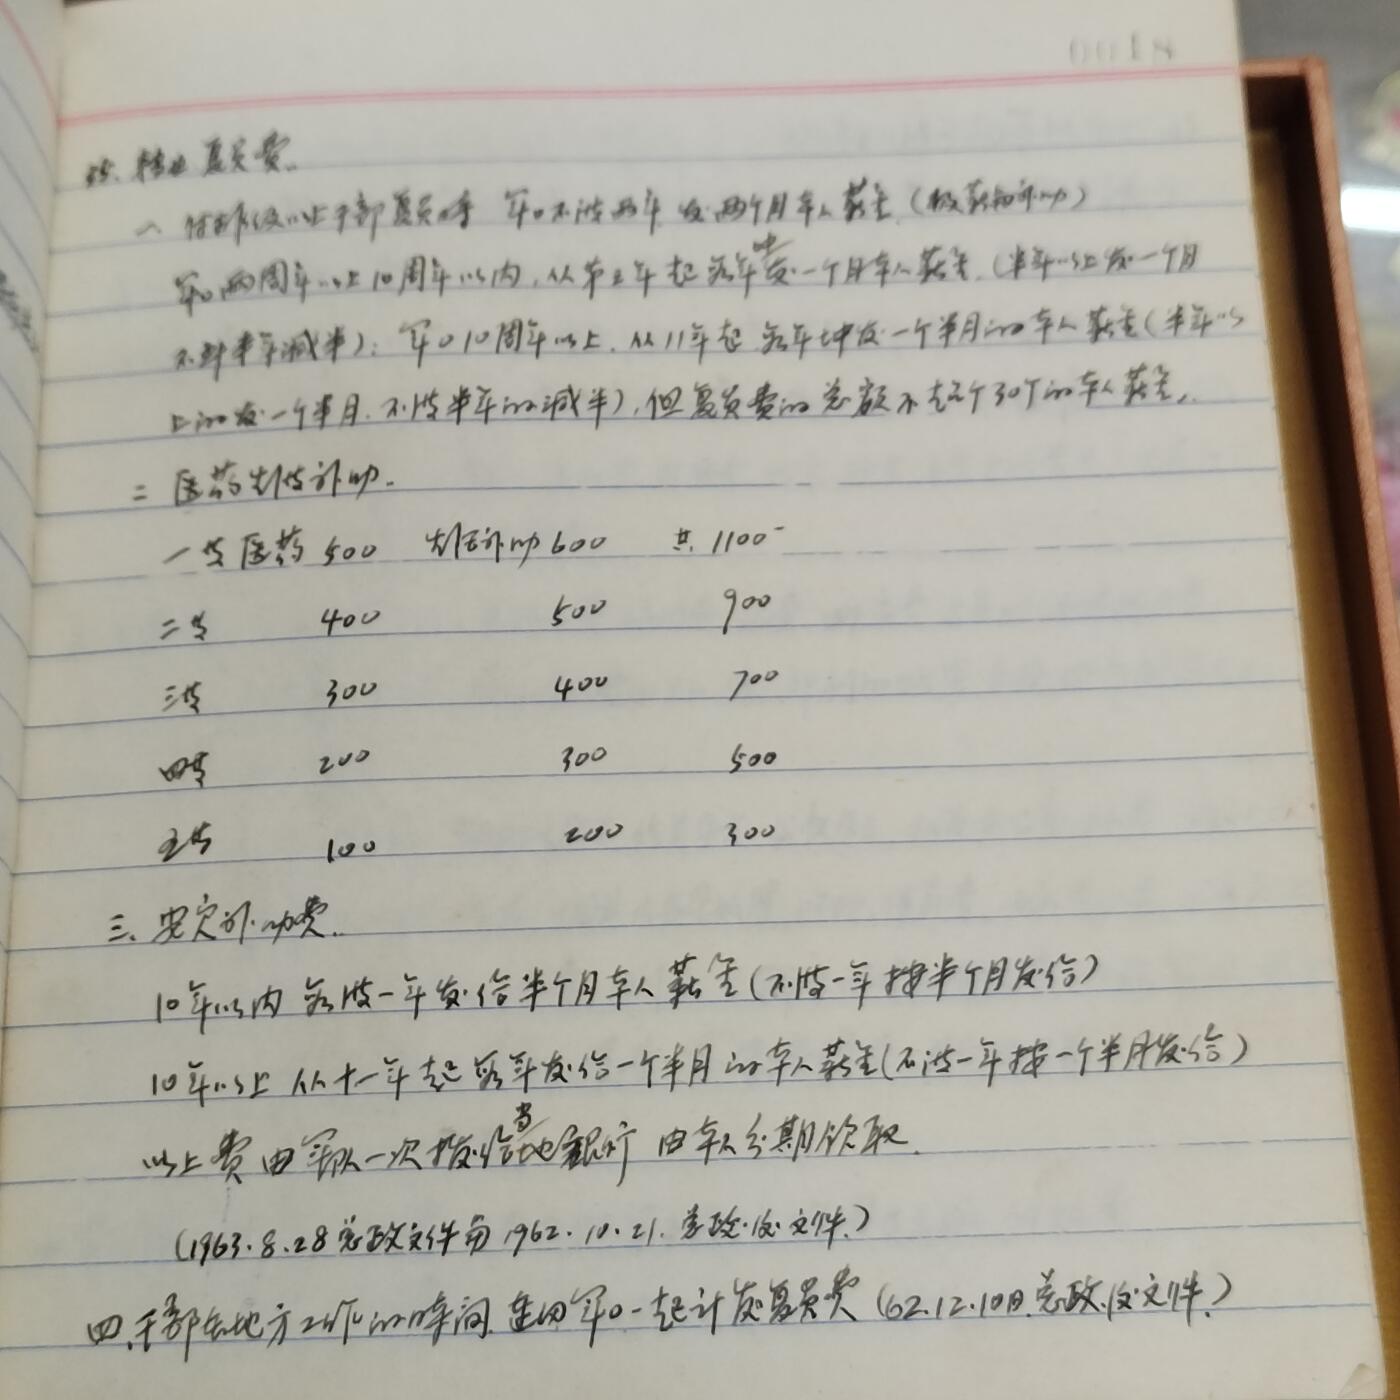 0018
转业复员费.
一 付排级以上干部复员时 军0不满两年 发两个月本人薪金 (级薪和补助)
军0两周年以上10周年以内, 从第三年起 每年发一个月本人薪金. (半年以上发一个月
不到半年减半); 军010周年以上, 从11年起 每年发一个半月的本人薪金 (半年以
上的发一个半月. 不满半年的减半), 但复员费的总额不超过30个的本人薪金.
二 医药生活补助.
一等医药 500 生活补助 600 共 1100-
二等 400 500 900
三等 300 400 700
四等 200 300 500
五等 100 200 300
三、安家补助费.
10年以内 每满一年发给半个月本人薪金 (不满一年按半个月发给)
10年以上 从十一年起 每年发给一个半月的本人薪金 (不满一年按一个半月发给)
以上费由军队一次拨给当地银行 由本人分期领取.
(1963.8.28总政文件和1962.10.21.总政.后.文件.)
四、干部在地方工作的时间 连同军0一起计发复员费 (62.12.10日总政.后.文件.)